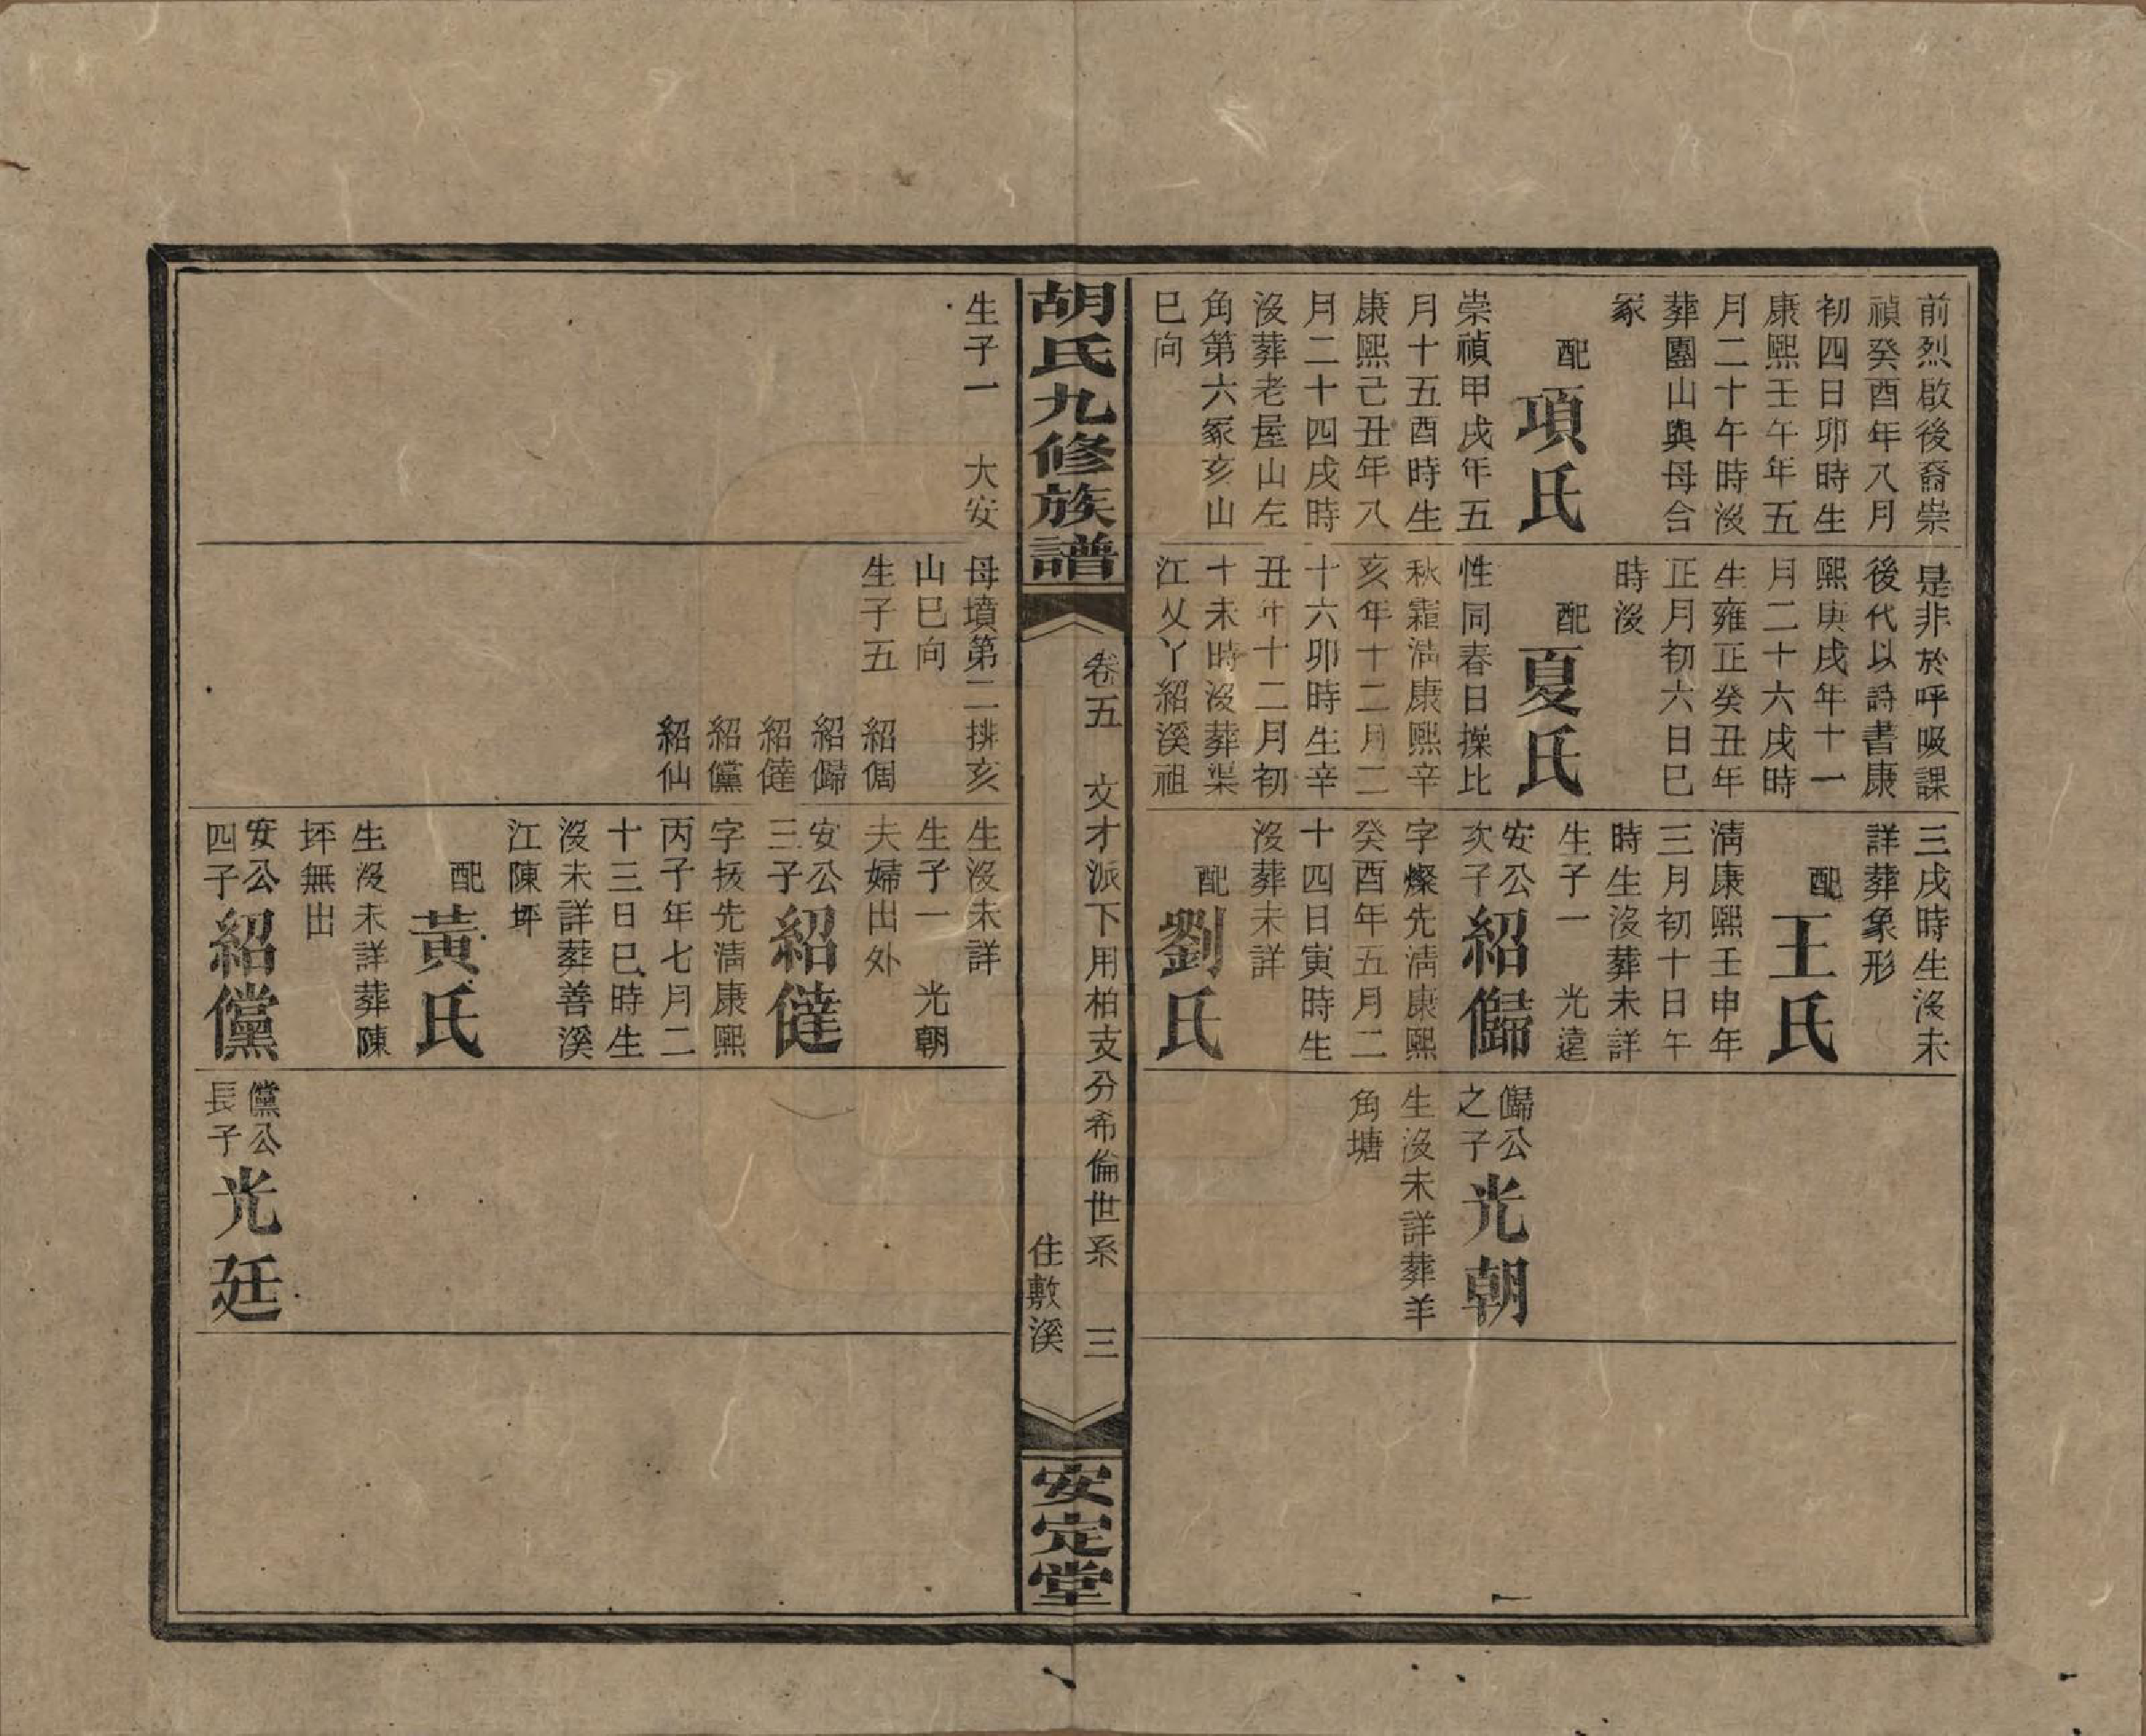 前烈啟後裔崇
禎癸酉年八月
初四日卯時生
康熙壬午年五
月二十午時沒
葬團山與母合
冢
配項氏
崇禎甲戌年五
月十五酉時生
康熙己丑年八
月二十四戌時
沒葬老屋山左
角第六冢亥山
巳向
是非於呼吸課
後代以詩書康
熙庚戌年十一
月二十六戌時
生雍正癸丑年
正月初六日巳
時沒
配夏氏
性同春日操比
秋霜清康熙辛
亥年十二月二
十六卯時生辛
丑年十二月初
十未時沒葬渠
江乂丫紹溪祖
三戌時生沒未
詳葬象形
配王氏
清康熙壬申年
三月初十日午
時生沒葬未詳
生子一 光遠
安公
次子
紹㱕
字燦先清康熙
癸酉年五月二
十四日寅時生
沒葬未詳
配劉氏
公
之子
光朝
生沒未詳葬羊
角塘
胡氏九修族譜
卷五 文才派下用柏支分希倫世系 三
住敷溪
安定堂
生子一 大安
母墳第二排亥
山巳向
生子五
紹倜
紹
紹㒓
紹儻
紹仙
生沒未詳
生子一 光朝
夫婦出外
安公
三子
紹㒓
字拔先清康熙
丙子年七月二
十三日巳時生
沒未詳葬善溪
江陳坪
配黃氏
生沒未詳葬陳
坪無出
安公
四子
紹儻
儻公
長子
光廷